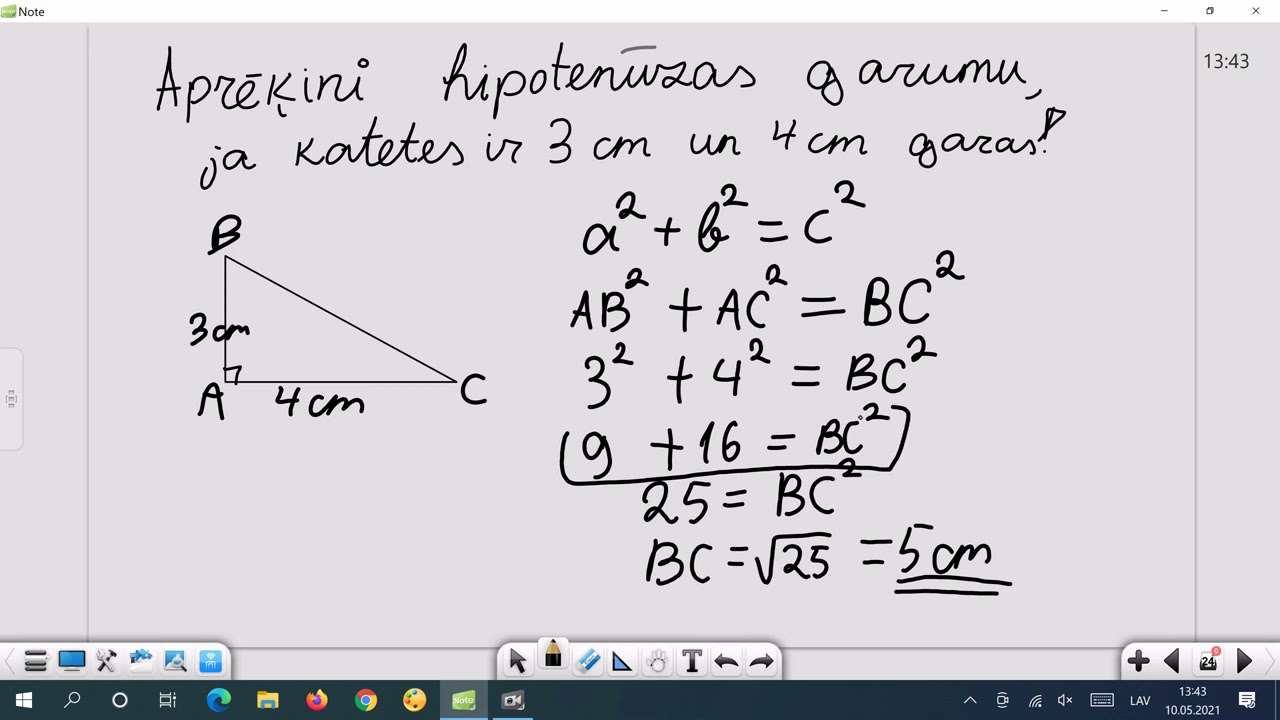 Note
13:43
Aprēķini hipotenūzas garumu,
ja katetes ir 3 cm un 4 cm garas!
B
3 cm
A
4 cm
C
a² + b² = c²
AB² + AC² = BC²
3² + 4² = BC²
9 + 16 = BC²
25 = BC²
BC = √25 = 5 cm
T
24
0
Note
LAV
13:43
10.05.2021